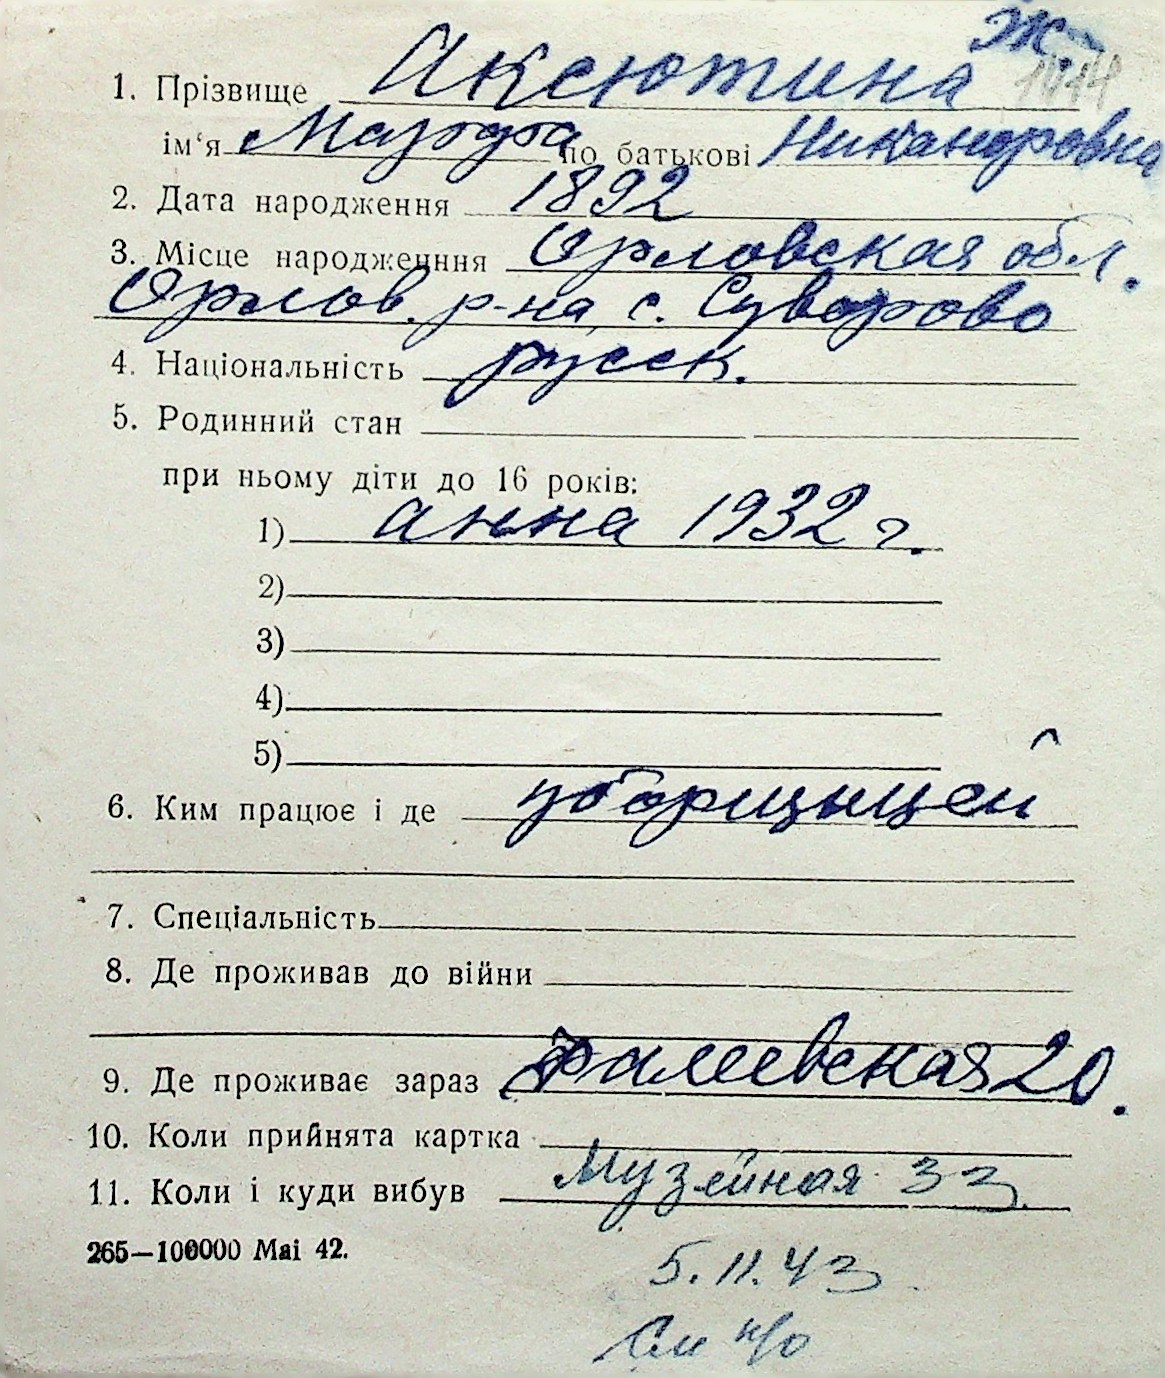 Ж.
1. Прізвище Аксютина
ім‘я Марфа по батькові Никаноровна
2. Дата народження 1892
3. Місце народженння Орловская обл.
Орлов. р-на, с. Суворово
4. Національність русск.
5. Родинний стан
при ньому діти до 16 років:
1) анна 1932 г.
2)
3)
4)
5)
6. Ким працює і де уборщыцей
7. Спеціальність
8. Де проживав до війни
9. Де проживає зараз Фалеевская 20.
10. Коли прийнята картка
11. Коли і куди вибув Музейная 33
265—100000 Mai 42.
5.11.43
См н/о